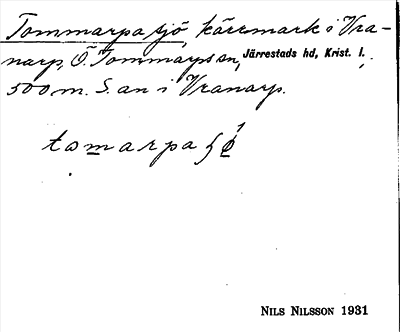 Tommarpa sjö, kärrmark i Vra-
narp, Ö. Tommarps sn, Järrestads hd, Krist. l.,
500 m. S. an i Vranarp.
tomarpa
NILS NILSSON 1931